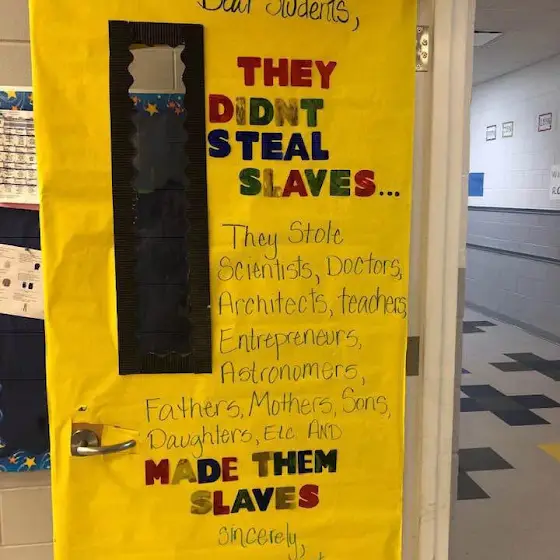 Dear Students,
THEY
DIDNT
STEAL
SLAVES...
They Stole
Scientists, Doctors,
Architects, teachers,
Entrepreneurs,
Astronomers,
Fathers, Mothers, Sons,
Daughters, Etc. AND
MADE THEM
SLAVES
sincerely,